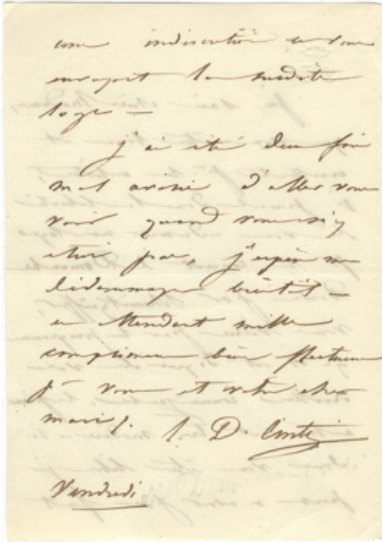 une indiscrétion en vous
envoyant la susdite
loge —
j'ai été deux fois
mal avisé d'aller vous
voir quand vous n'y
étiez pas, j'espère me
dédommager bientôt —
en attendant mille
complimens bien
à vous et votre cher
mari.
Vendredi